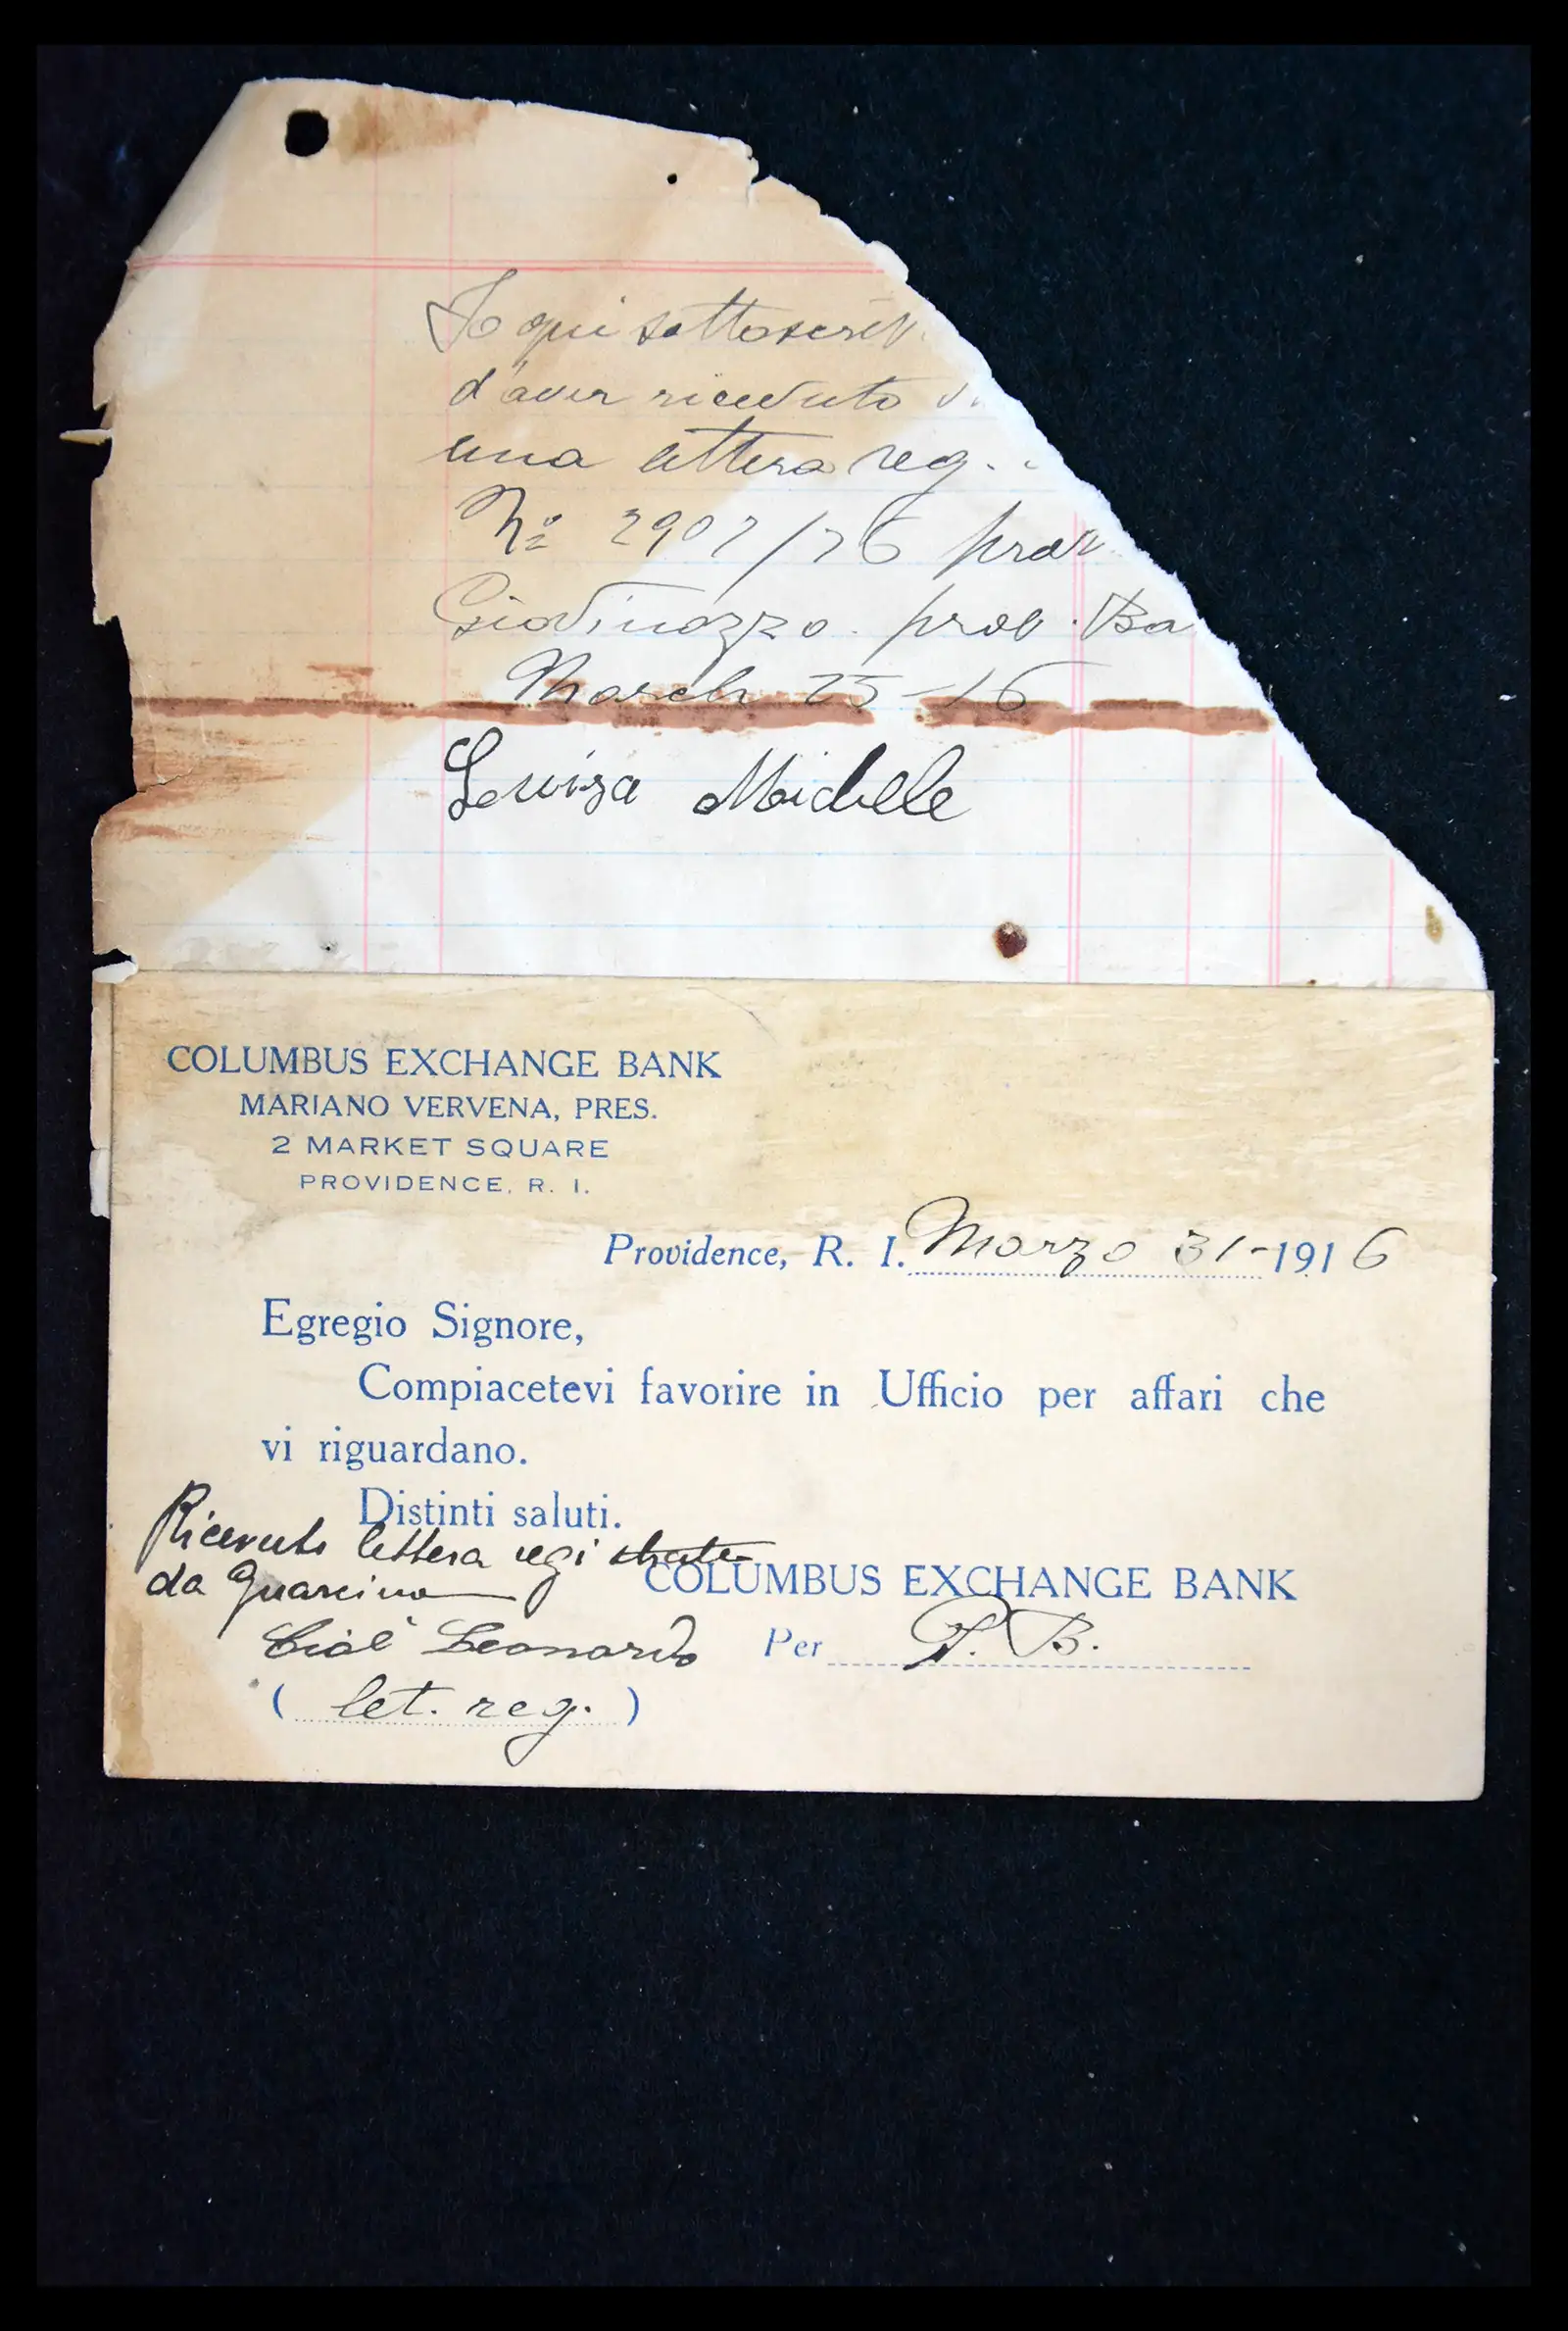 Io qui sottoscrit
d'aver ricevuto
una lettera reg.
No 2907/76 prov
Giovinazzo. prov. Ba
March 25-16
Luisa Michele
COLUMBUS EXCHANGE BANK
MARIANO VERVENA, PRES.
2 MARKET SQUARE
PROVIDENCE, R. I.
Providence, R. I. Marzo 31-1916
Egregio Signore,
Compiacetevi favorire in Ufficio per affari che
vi riguardano.
Distinti saluti.
Ricevuto lettera registrata
da Guarcino
COLUMBUS EXCHANGE BANK
Leonardo Per P. B.
( let. reg. )